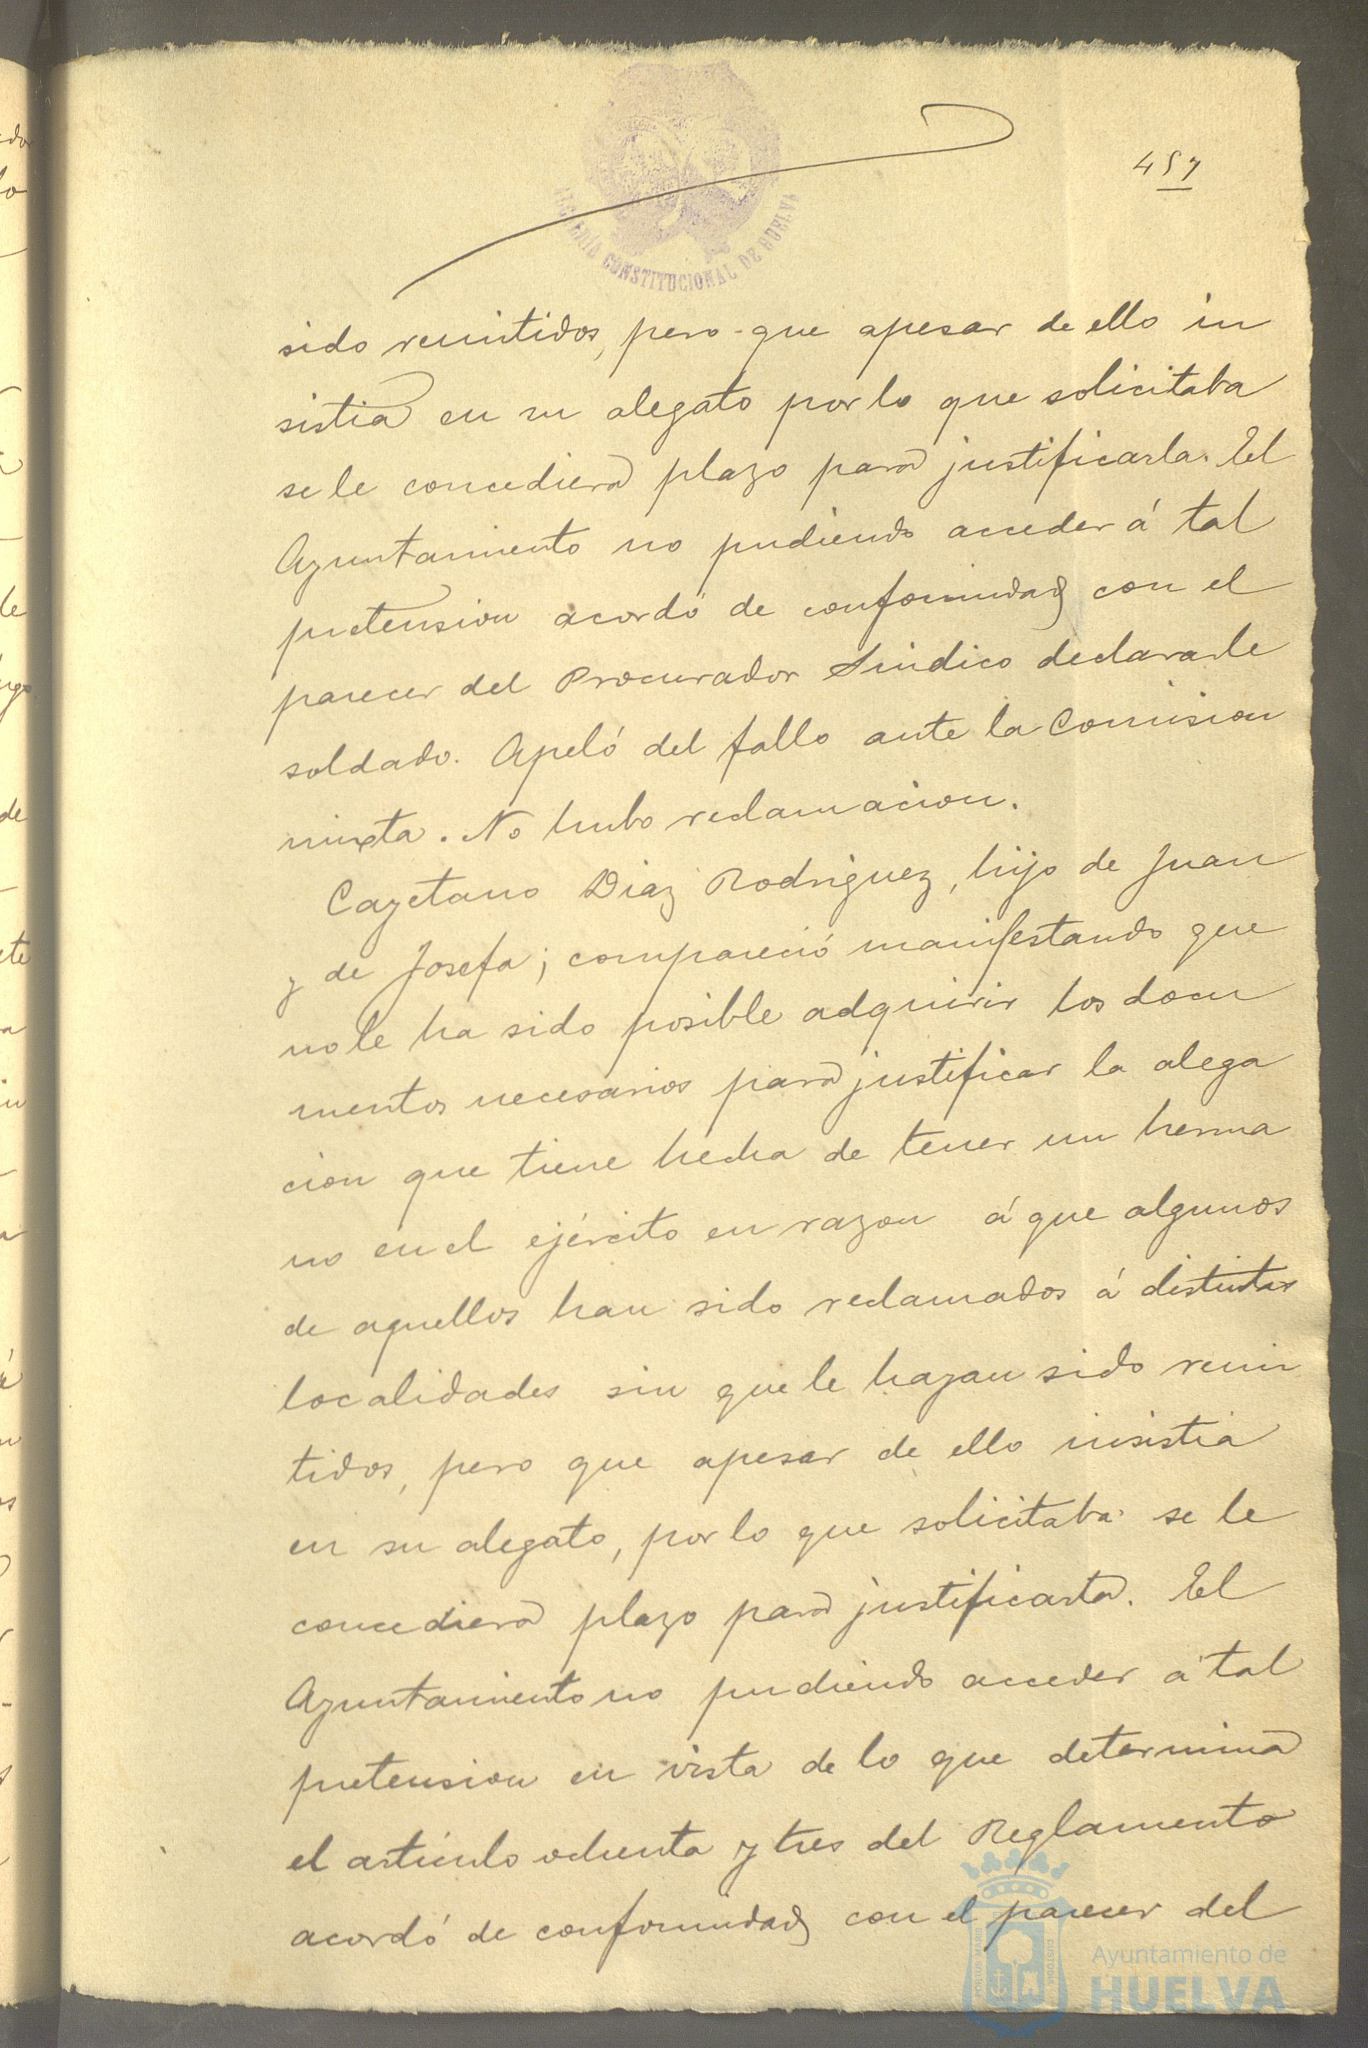 457
CONSTITUCIONAL DE HUELVA
sido remitidos, pero que apesar de ello in
sistia en su alegato por lo que solicitaba
se le concediera plazo para justificarla. El
Ayuntamiento no pudiendo acceder á tal
pretension acordó de conformidad con el
parecer del Procurador Sindico declararle
soldado. Apeló del fallo ante la Comision
mixta. No hubo reclamacion.
Cayetano Diaz Rodriguez, hijo de Juan
y de Josefa; compareció manifestando que
no le ha sido posible adquirir los docu
mentos necesarios para justificar la alega
cion que tiene hecha de tener un herma
no en el ejército en razon á que algunos
de aquellos han sido reclamados á distintas
localidades sin que le hayan sido remi
tidos, pero que apesar de ello insistia
en su alegato, por lo que solicitaba se le
concediera plazo para justificarla. El
Ayuntamiento no pudiendo acceder á tal
pretension en vista de lo que determina
el artículo ochenta y tres del Reglamento
acordó de conformidad con el parecer del
Ayuntamiento de
HUELVA